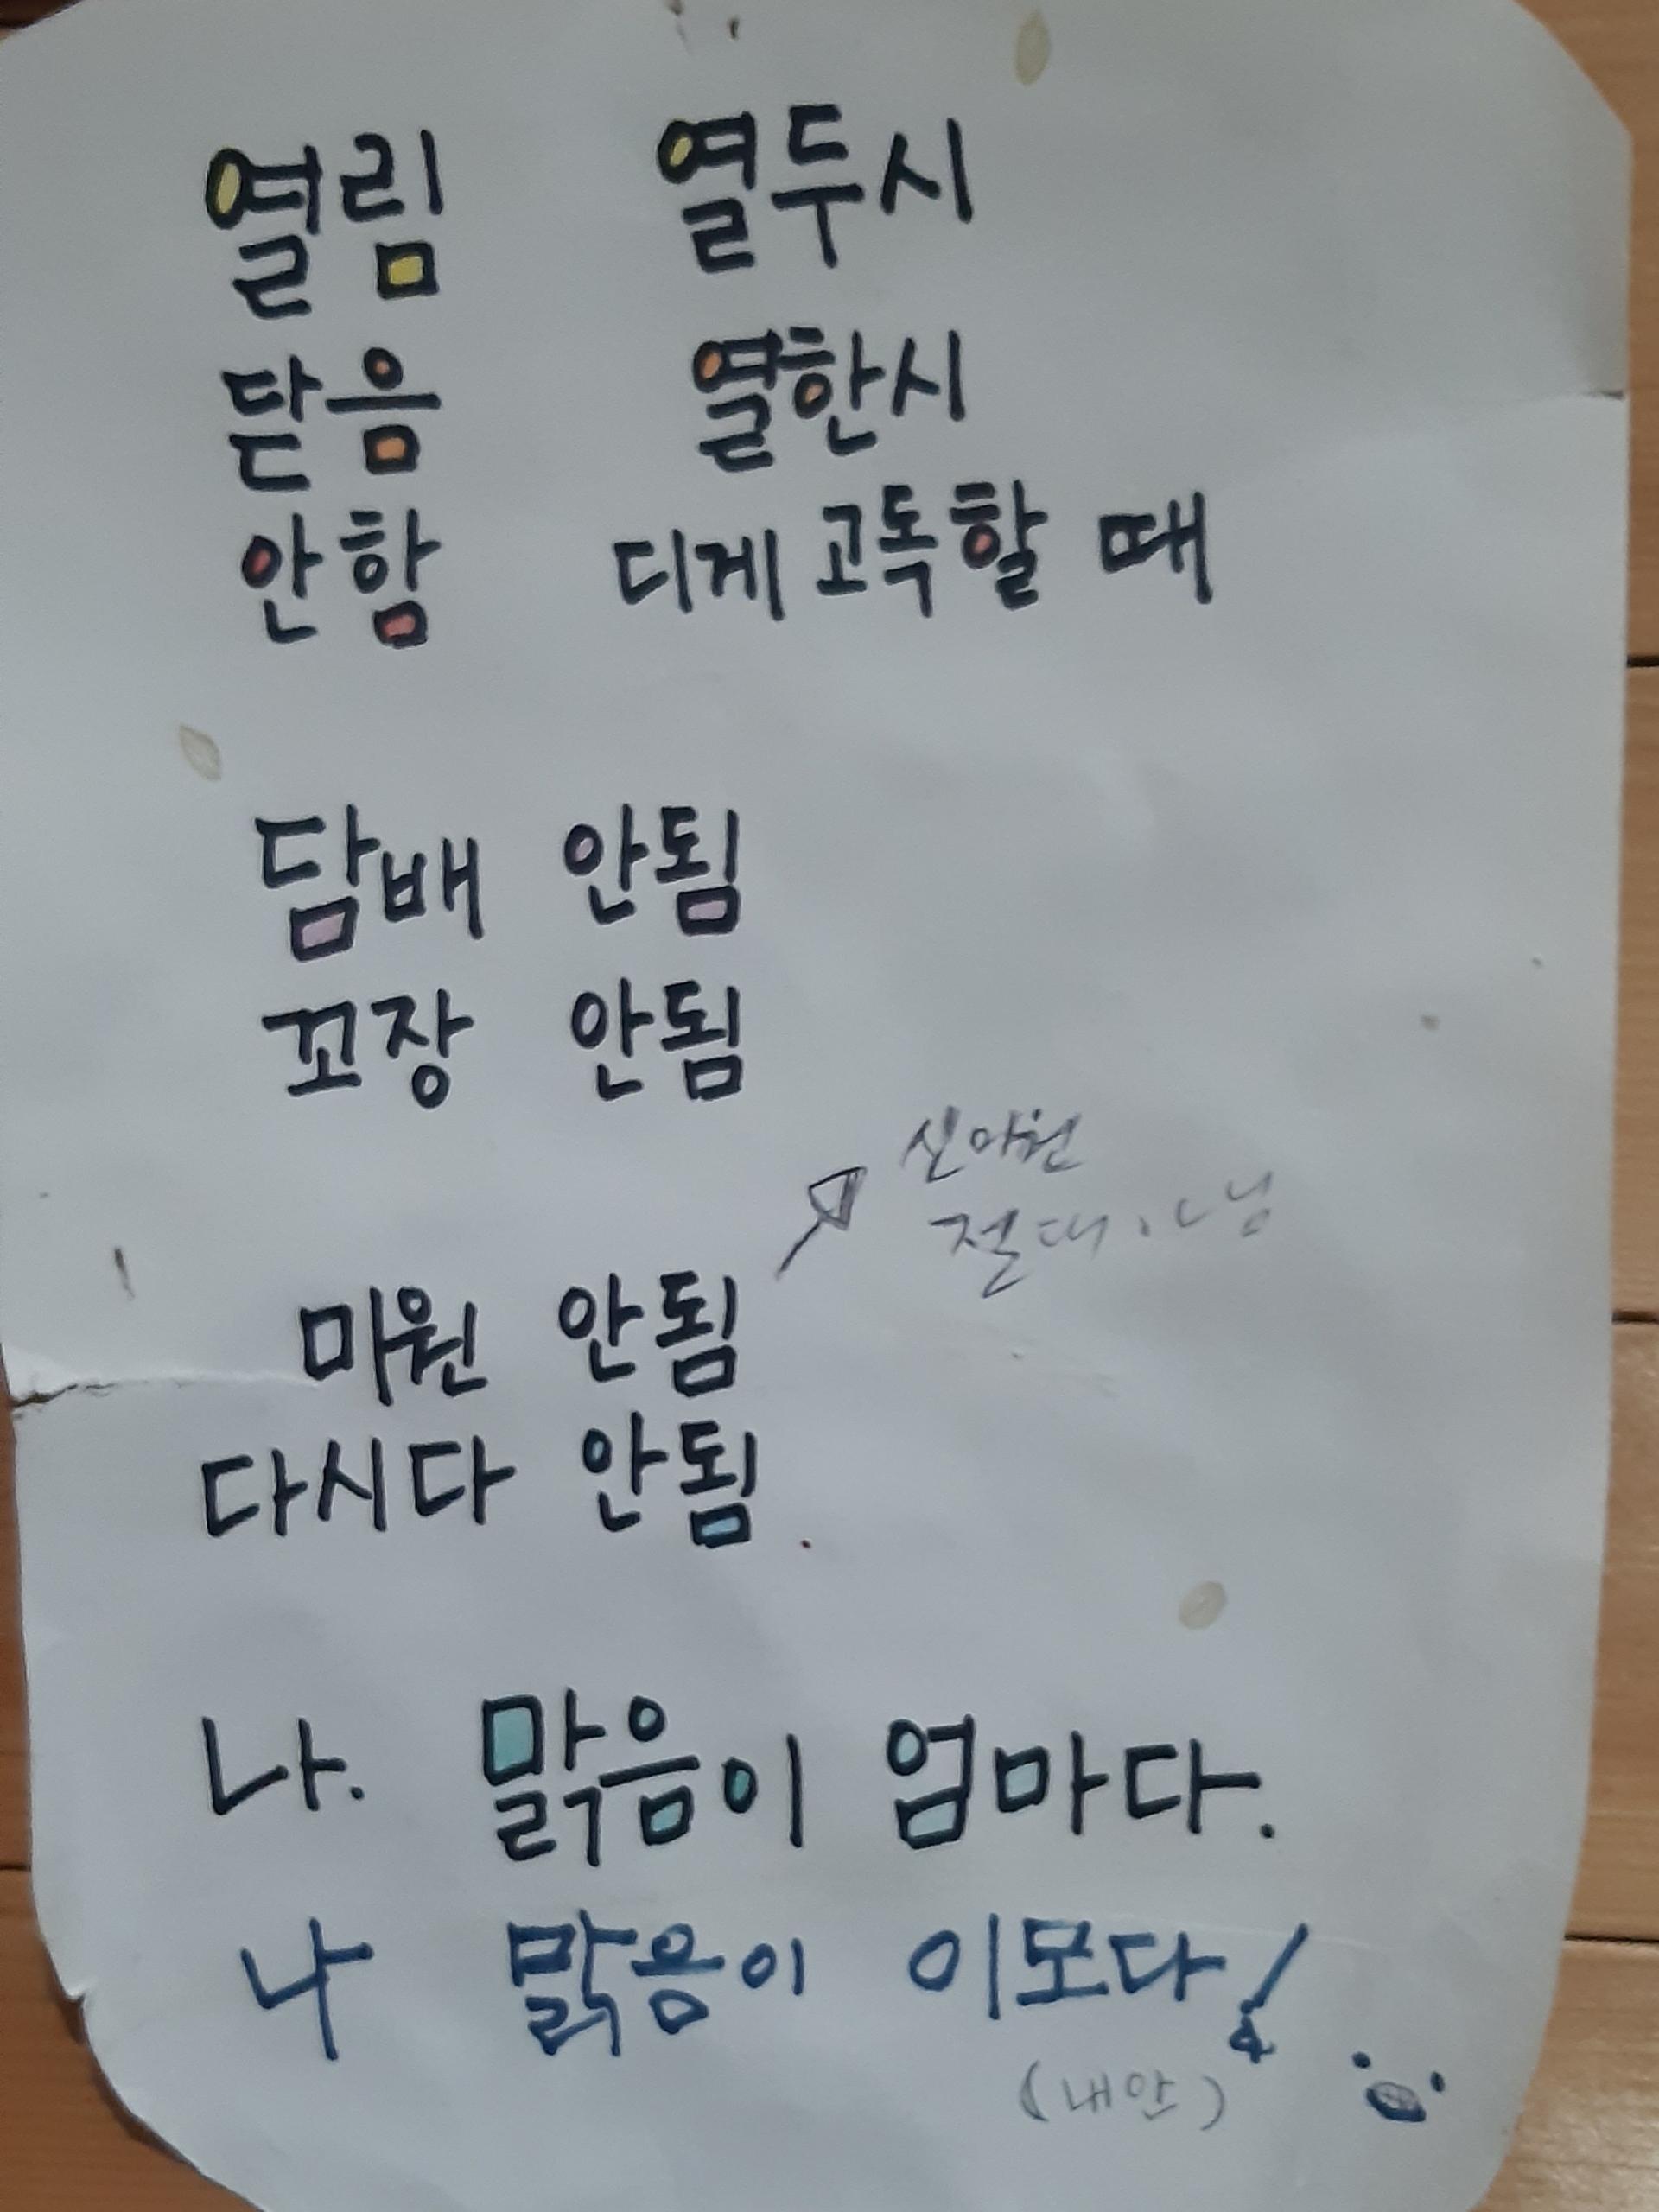 열림 열두시
닫음 열한시
안함 디게 고독할 때
담배 안됨
꼬장 안됨
신마원
절대
미원 안됨
다시다 안됨
나. 맑음이 엄마다.
나 맑음이 이모다!
(내안)